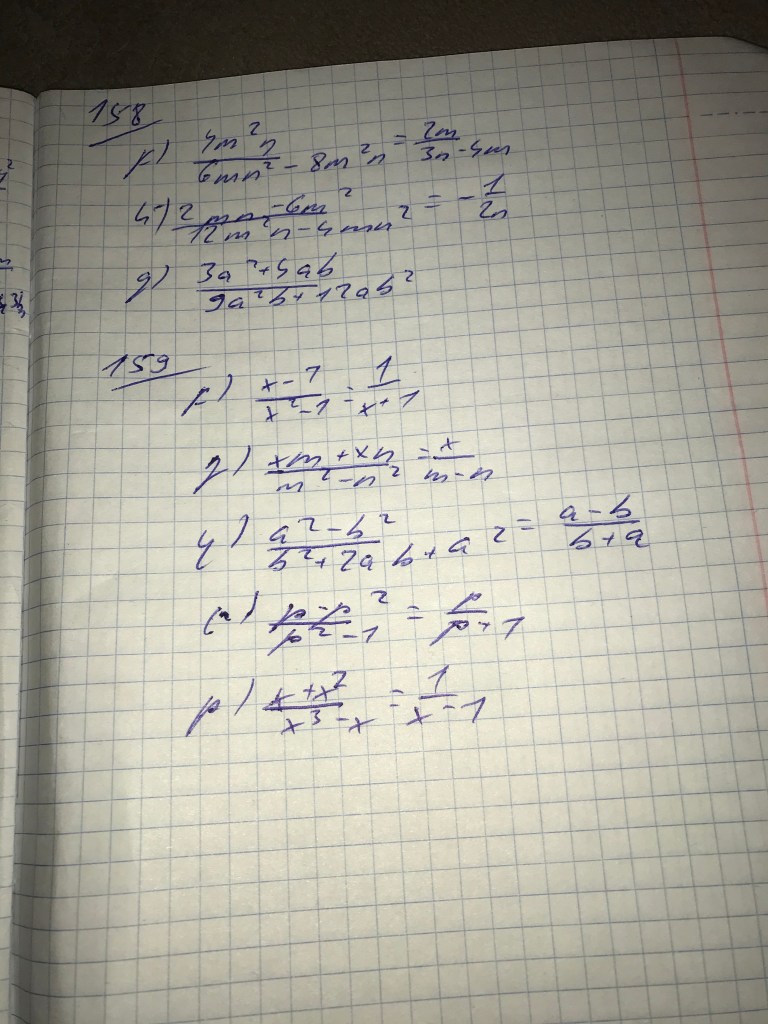 158
г) 4m²n / 6mn² - 8m²n = 2m / 3n - 4m
2mn - 6m² / 12m²n - 4mn² = - 1 / 2n
g) 3a² + 4ab / 9a²b + 12ab²
159
г) x - 1 / x² - 1 = 1 / x + 1
g) xm + xn / m² - n² = x / m - n
a² - b² / b² + 2ab + a² = a - b / b + a
p - p² / p² - 1 = p / p + 1
p) x + x² / x³ - x = 1 / x - 1